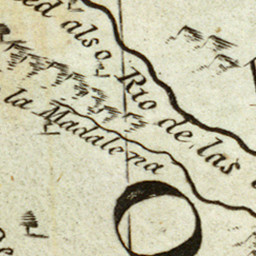 also Rio de las
la Madalena